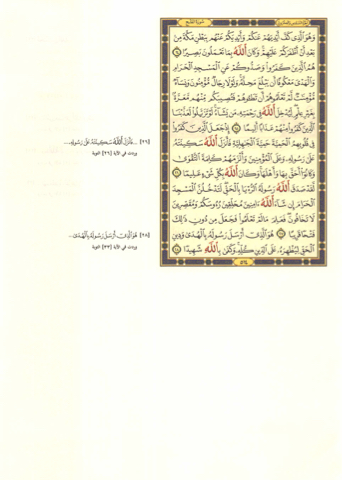 سورة الفتح
وَهُوَ الَّذِي كَفَّ أَيْدِيَهُمْ عَنكُمْ وَأَيْدِيَكُمْ عَنْهُم بِبَطْنِ مَكَّةَ مِنۢ
بَعْدِ أَنْ أَظْفَرَكُمْ عَلَيْهِمْ وَكَانَ اللَّهُ بِمَا تَعْمَلُونَ بَصِيرًا ٢٤
هُمُ الَّذِينَ كَفَرُوا وَصَدُّوكُمْ عَنِ الْمَسْجِدِ الْحَرَامِ
وَالْهَدْيَ مَعْكُوفًا أَن يَبْلُغَ مَحِلَّهُ وَلَوْلَا رِجَالٌ مُّؤْمِنُونَ وَنِسَاءٌ
مُّؤْمِنَاتٌ لَّمْ تَعْلَمُوهُمْ أَن تَطَئُوهُمْ فَتُصِيبَكُم مِّنْهُم مَّعَرَّةٌ
بِغَيْرِ عِلْمٍ لِّيُدْخِلَ اللَّهُ فِي رَحْمَتِهِ مَن يَشَاءُ لَوْ تَزَيَّلُوا لَعَذَّبْنَا
الَّذِينَ كَفَرُوا مِنْهُمْ عَذَابًا أَلِيمًا ٢٥ إِذْ جَعَلَ الَّذِينَ كَفَرُوا
فِي قُلُوبِهِمُ الْحَمِيَّةَ حَمِيَّةَ الْجَاهِلِيَّةِ فَأَنزَلَ اللَّهُ سَكِينَتَهُ
عَلَى رَسُولِهِ وَعَلَى الْمُؤْمِنِينَ وَأَلْزَمَهُمْ كَلِمَةَ التَّقْوَى
وَكَانُوا أَحَقَّ بِهَا وَأَهْلَهَا وَكَانَ اللَّهُ بِكُلِّ شَيْءٍ عَلِيمًا ٢٦
لَّقَدْ صَدَقَ اللَّهُ رَسُولَهُ الرُّءْيَا بِالْحَقِّ لَتَدْخُلُنَّ الْمَسْجِدَ
الْحَرَامَ إِن شَاءَ اللَّهُ ءَامِنِينَ مُحَلِّقِينَ رُءُوسَكُمْ وَمُقَصِّرِينَ
لَا تَخَافُونَ فَعَلِمَ مَا لَمْ تَعْلَمُوا فَجَعَلَ مِن دُونِ ذَلِكَ
فَتْحًا قَرِيبًا ٢٧ هُوَ الَّذِي أَرْسَلَ رَسُولَهُ بِالْهُدَى وَدِينِ
الْحَقِّ لِيُظْهِرَهُ عَلَى الدِّينِ كُلِّهِ وَكَفَى بِاللَّهِ شَهِيدًا ٢٨
٥١٤
[٢٦] ... فَأَنزَلَ اللَّهُ سَكِينَتَهُ عَلَى رَسُولِهِ ...
وردت في الآية [٢٦] التوبة
[٢٨] هُوَ الَّذِي أَرْسَلَ رَسُولَهُ بِالْهُدَى ...
وردت في الآية [٣٣] التوبة